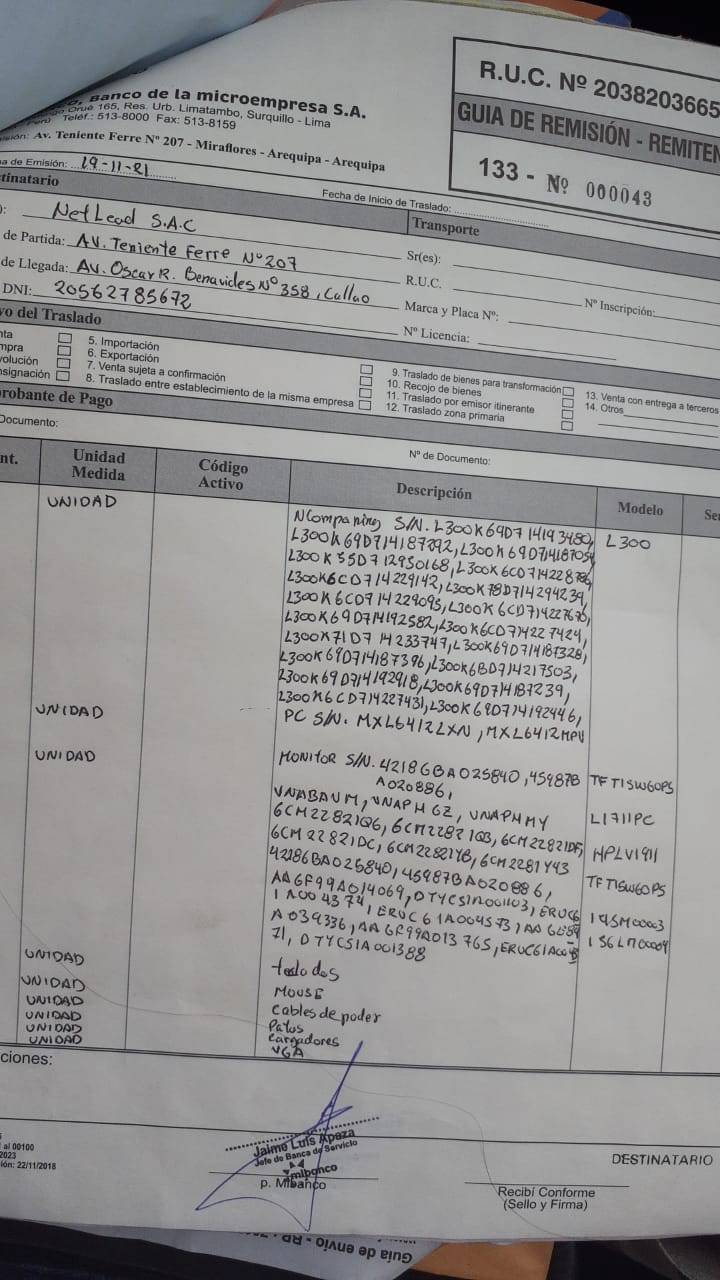 Banco de la microempresa S.A.
Orué 165, Res. Urb. Limatambo, Surquillo - Lima
Teléf.: 513-8000 Fax: 513-8159
Av. Teniente Ferre Nº 207 - Miraflores - Arequipa - Arequipa
R.U.C. Nº 2038203665
GUIA DE REMISIÓN - REMITEN
133 - Nº 000043
a de Emisión: 19-11-21
Fecha de Inicio de Traslado:
tinatario
Transporte
): NetLead S.A.C
Sr(es):
de Partida: AV. Teniente Ferre Nº 207
R.U.C.
Nº Inscripción:
de Llegada: Av. Oscar R. Benavides Nº 358, Callao
Marca y Placa Nº:
DNI: 20562785672
Nº Licencia:
vo del Traslado
nta
mpra
volución
nsignación
5. Importación
6. Exportación
7. Venta sujeta a confirmación
8. Traslado entre establecimiento de la misma empresa
9. Traslado de bienes para transformación
10. Recojo de bienes
11. Traslado por emisor itinerante
12. Traslado zona primaria
13. Venta con entrega a terceros
14. Otros
robante de Pago
Documento:
Nº de Documento:
nt.
Unidad Medida
Código Activo
Descripción
Modelo
Se
UNIDAD
NCompaning S/N. L300K69D714193480,
L300
L300K69D714187292, L300K69D714187054
L300K55D712950168, L300K6CD714228786
L300K6CD714229142, L300K78D714294239,
L300K6CD714229095, L300K6CD714227676,
L300K69D714192582, L300K6CD714227424,
L300K71D714233747, L300K69D714187328,
L300K69D714187396, L300K6BD714217503,
L300K69D714192918, L300K69D714187239,
L300K6CD714227431, L300K69D714192446,
UNIDAD
PC S/N. MXL6412LXN, MXL6412MPV
UNIDAD
MONITOR S/N. 42186BA025840, 45987B
TFT15W60PS
A020886,
VNABAUM, VNAPHGZ, VNAPHMY
L1711PC
6CM22821Q6, 6CM22821QB, 6CM22821DF,
6CM22821DC, 6CM22821YB, 6CM2281Y43
HPLV1911
42186BA025840, 45987BA020886,
TFT15W60PS
AA6F99A014069, DTYCS1A001103, ERUC6
195M00003
1A004374, ERUC61A004573, AA6E89
156L700009
A039336, AA6F99A013765, ERUC61A00
71, DTYCS1A001388
UNIDAD
teclados
UNIDAD
MOUSE
UNIDAD
Cables de poder
UNIDAD
Patos
UNIDAD
Cargadores
UNIDAD
VGA
ciones:
al 00100
2023
ión: 22/11/2018
Jaime Luis Apaza
Jefe de Banca de Servicio
mibanco
p. Mibanco
DESTINATARIO
Recibí Conforme
(Sello y Firma)
Guía de envío - RP